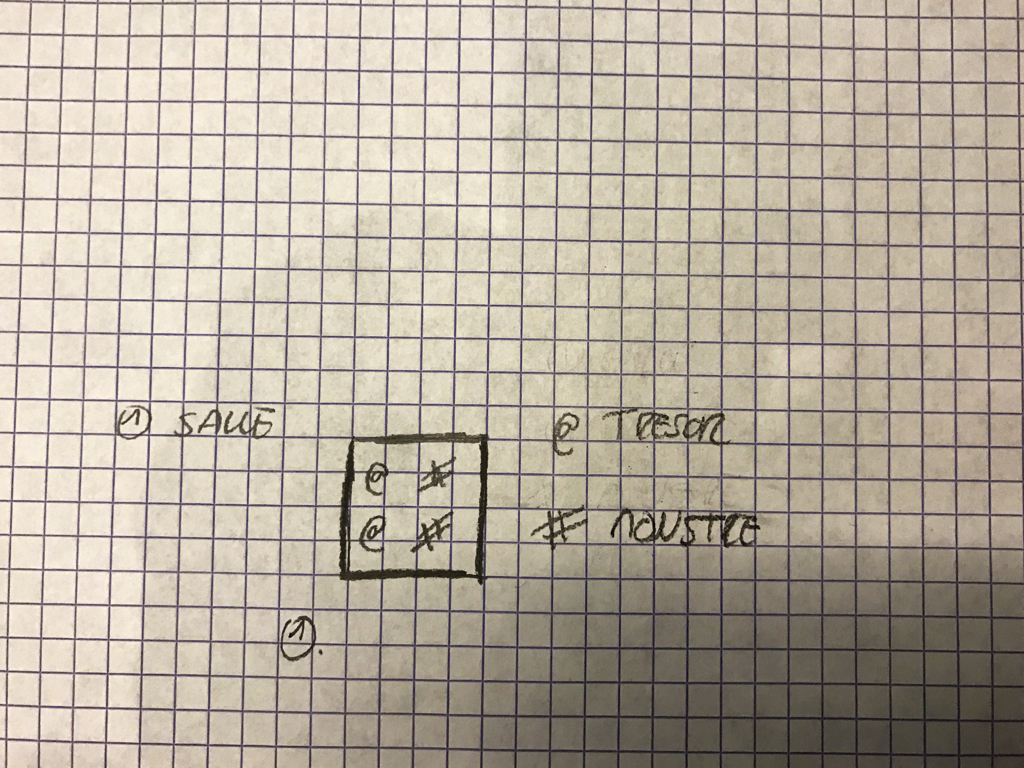 ① SALLE
@ TRESOR
@ #
@ #
# MONSTRE
①.